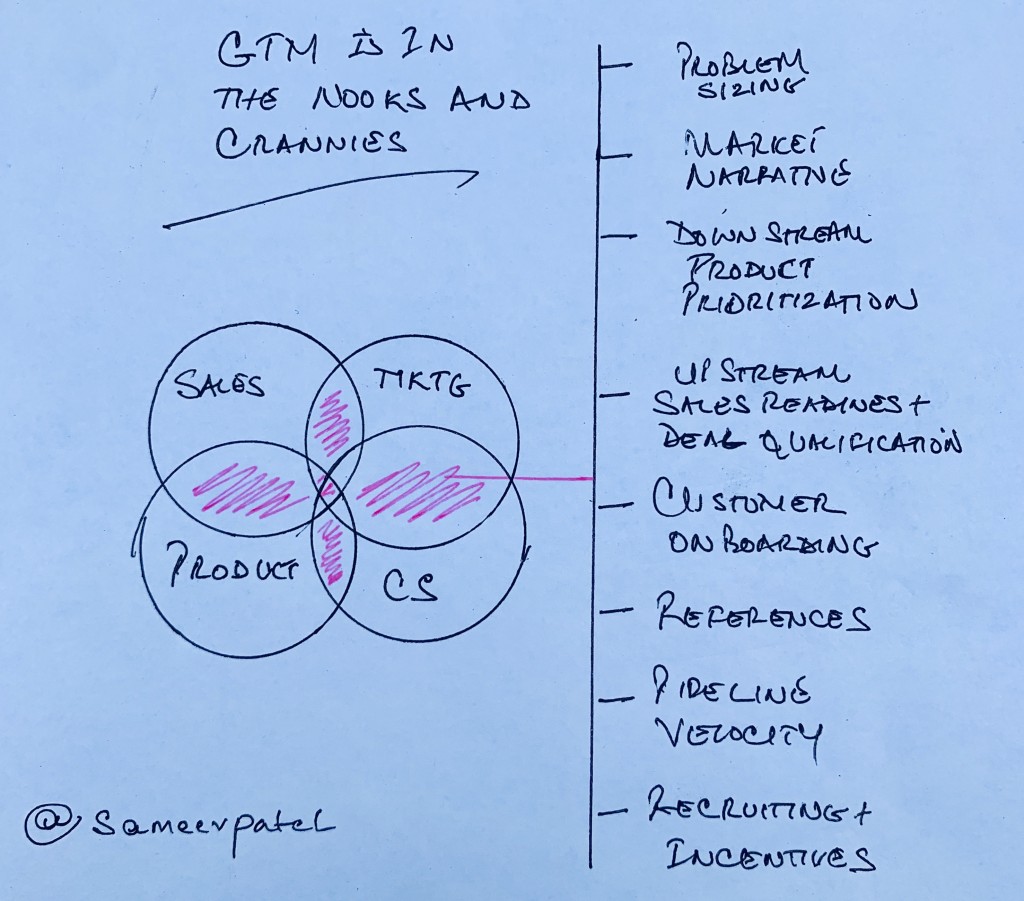 GTM IS IN
THE NOOKS AND
CRANNIES
SALES
MKTG
PRODUCT
CS
@sameerpatel
PROBLEM
SIZING
MARKET
NARRATIVE
DOWNSTREAM
PRODUCT
PRIORITIZATION
UPSTREAM
SALES READINES +
DEAL QUALIFICATION
CUSTOMER
ONBOARDING
REFERENCES
PIPELINE
VELOCITY
RECRUITING +
INCENTIVES